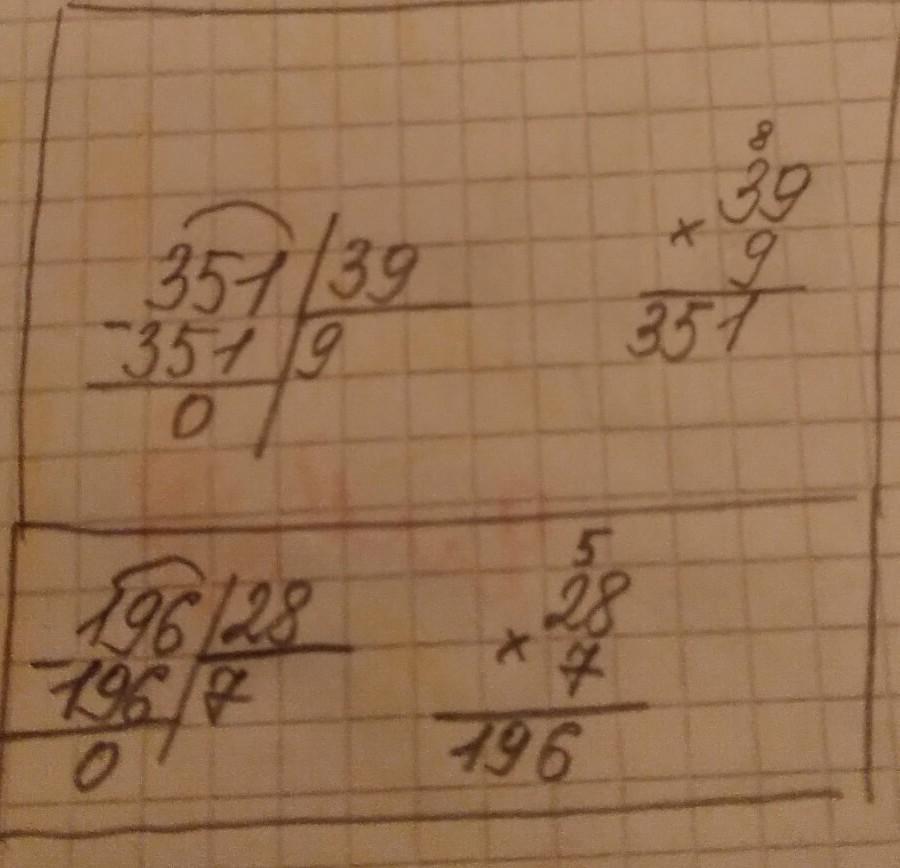 8
351 39 × 39
- 351 9 9
0 351
5
196 28 × 28
- 196 7 7
0 196